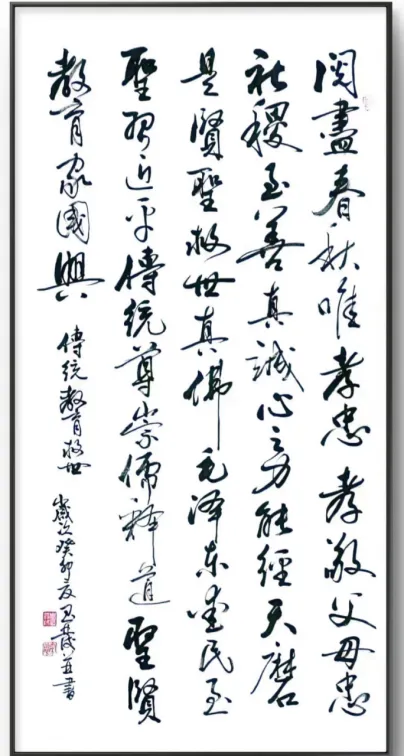 閱盡春秋唯孝忠孝敬父母忠
社稷至善真誠心之力能經天磨
是賢聖救世真佛毛泽东愛民至
聖習近平傳統尊崇儒釋道聖賢
教育家國興
傳統教育救世
歲次癸卯夏並書